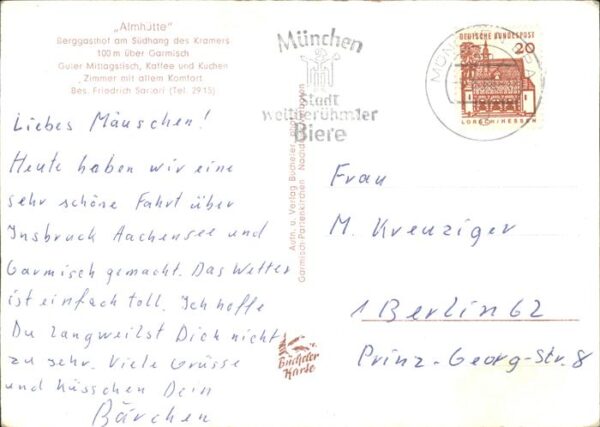 „Almhütte"
Berggasthof am Südhang des Kramers
100 m über Garmisch
Guter Mittagstisch, Kaffee und Kuchen
Zimmer mit allem Komfort
Bes. Friedrich Sartori (Tel. 2915)
Liebes Mäuschen!
Heute haben wir eine
sehr schöne Fahrt über
Insbruck Aachensee und
Garmisch gemacht. Das Wetter
ist einfach toll. Ich hoffe
Du langweilst Dich nicht
zu sehr. Viele Grüsse
und Küsschen Dein
Bärchen
Aufn. u. Verlag Bücheler
Garmisch-Partenkirchen
Bücheler
Karte
München
Stadt
weltberühmter
Biere
MÜNCHEN
DEUTSCHE BUNDESPOST
20
LORSCH/HESSEN
Frau
M. Kreuziger
1 Berlin 62
Prinz-Georg-Str. 8